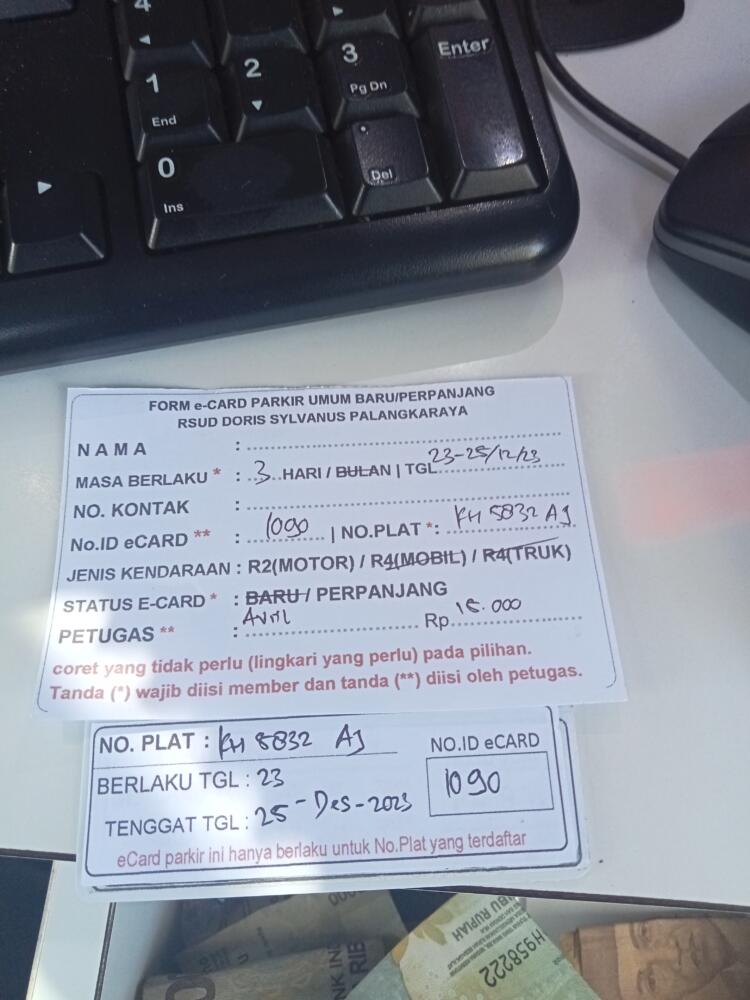 4
1
End
2
3
Pg Dn
Enter
0
Ins
Del
FORM e-CARD PARKIR UMUM BARU/PERPANJANG
RSUD DORIS SYLVANUS PALANGKARAYA
NAMA :
MASA BERLAKU * : 3 HARI / BULAN | TGL 23-25/12/23
NO. KONTAK :
No.ID eCARD ** : 1090 | NO.PLAT *: KH 5832 AJ
JENIS KENDARAAN : R2(MOTOR) / R4(MOBIL) / R4(TRUK)
STATUS E-CARD * : BARU / PERPANJANG
PETUGAS ** : Avril Rp 15.000
coret yang tidak perlu (lingkari yang perlu) pada pilihan.
Tanda (*) wajib diisi member dan tanda (**) diisi oleh petugas.
NO. PLAT : KH 5832 AJ
NO.ID eCARD
1090
BERLAKU TGL : 23
TENGGAT TGL : 25-Des-2023
eCard parkir ini hanya berlaku untuk No.Plat yang terdaftar
IBU RUPIAH
H958222